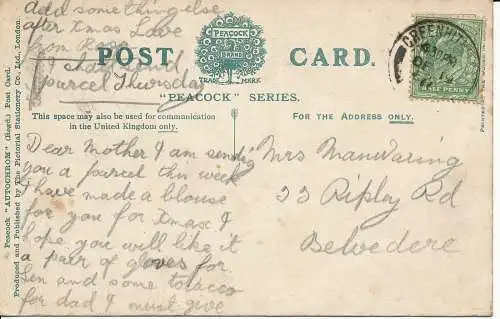 Add something else
after Xmas Love
from Rose
parcel Thursday
POST CARD.
PEACOCK
BRAND
TRADE MARK
"PEACOCK" SERIES.
This space may also be used for communication
in the United Kingdom only.
FOR THE ADDRESS ONLY.
Dear Mother I am sending
you a parcel this week
I have made a blouse
for you for Xmas I
hope you will like it
a pair of gloves for
Len and some tobacco
for dad I must give
Mrs Manwaring
33 Ripley Rd
Belvedere
GREENHITHE
HALF PENNY
Peacock "AUTOCHROM" (Regd.) Post Card.
Produced and Published by The Pictorial Stationery Co., Ltd., London.